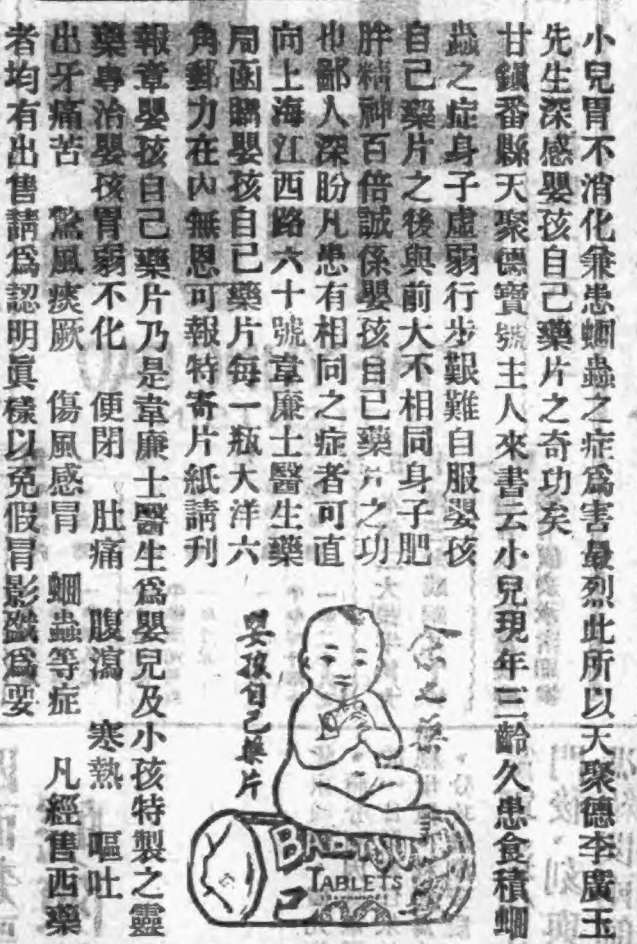 小兒胃不消化兼患蛔蟲之症爲害最烈此所以天聚德李廣玉
先生深感嬰孩自己藥片之奇功矣
甘鎭番縣天聚德寶號主人來書云小兒現年三齡久患食積蛔
蟲之症身子虛弱行步艱難自服嬰孩
自己藥片之後與前大不相同身子肥
胖精神百倍誠係嬰孩自己藥片之功
也鄙人深盼凡患有相同之症者可直
向上海江西路六十號韋廉士醫生藥
局函購嬰孩自己藥片每一瓶大洋六
角郵力在內無恩可報特寄片紙請刊
報章嬰孩自己藥片乃是韋廉士醫生爲嬰兒及小孩特製之靈
藥專治嬰孩胃弱不化 便閉 肚痛 腹瀉 寒熱 嘔吐
出牙痛苦 驚風痰厥 傷風感冒 蛔蟲等症 凡經售西藥
者均有出售請爲認明眞樣以免假冒影戤爲要
之藥
嬰孩自己藥片
BABY'S OWN
TABLETS
己